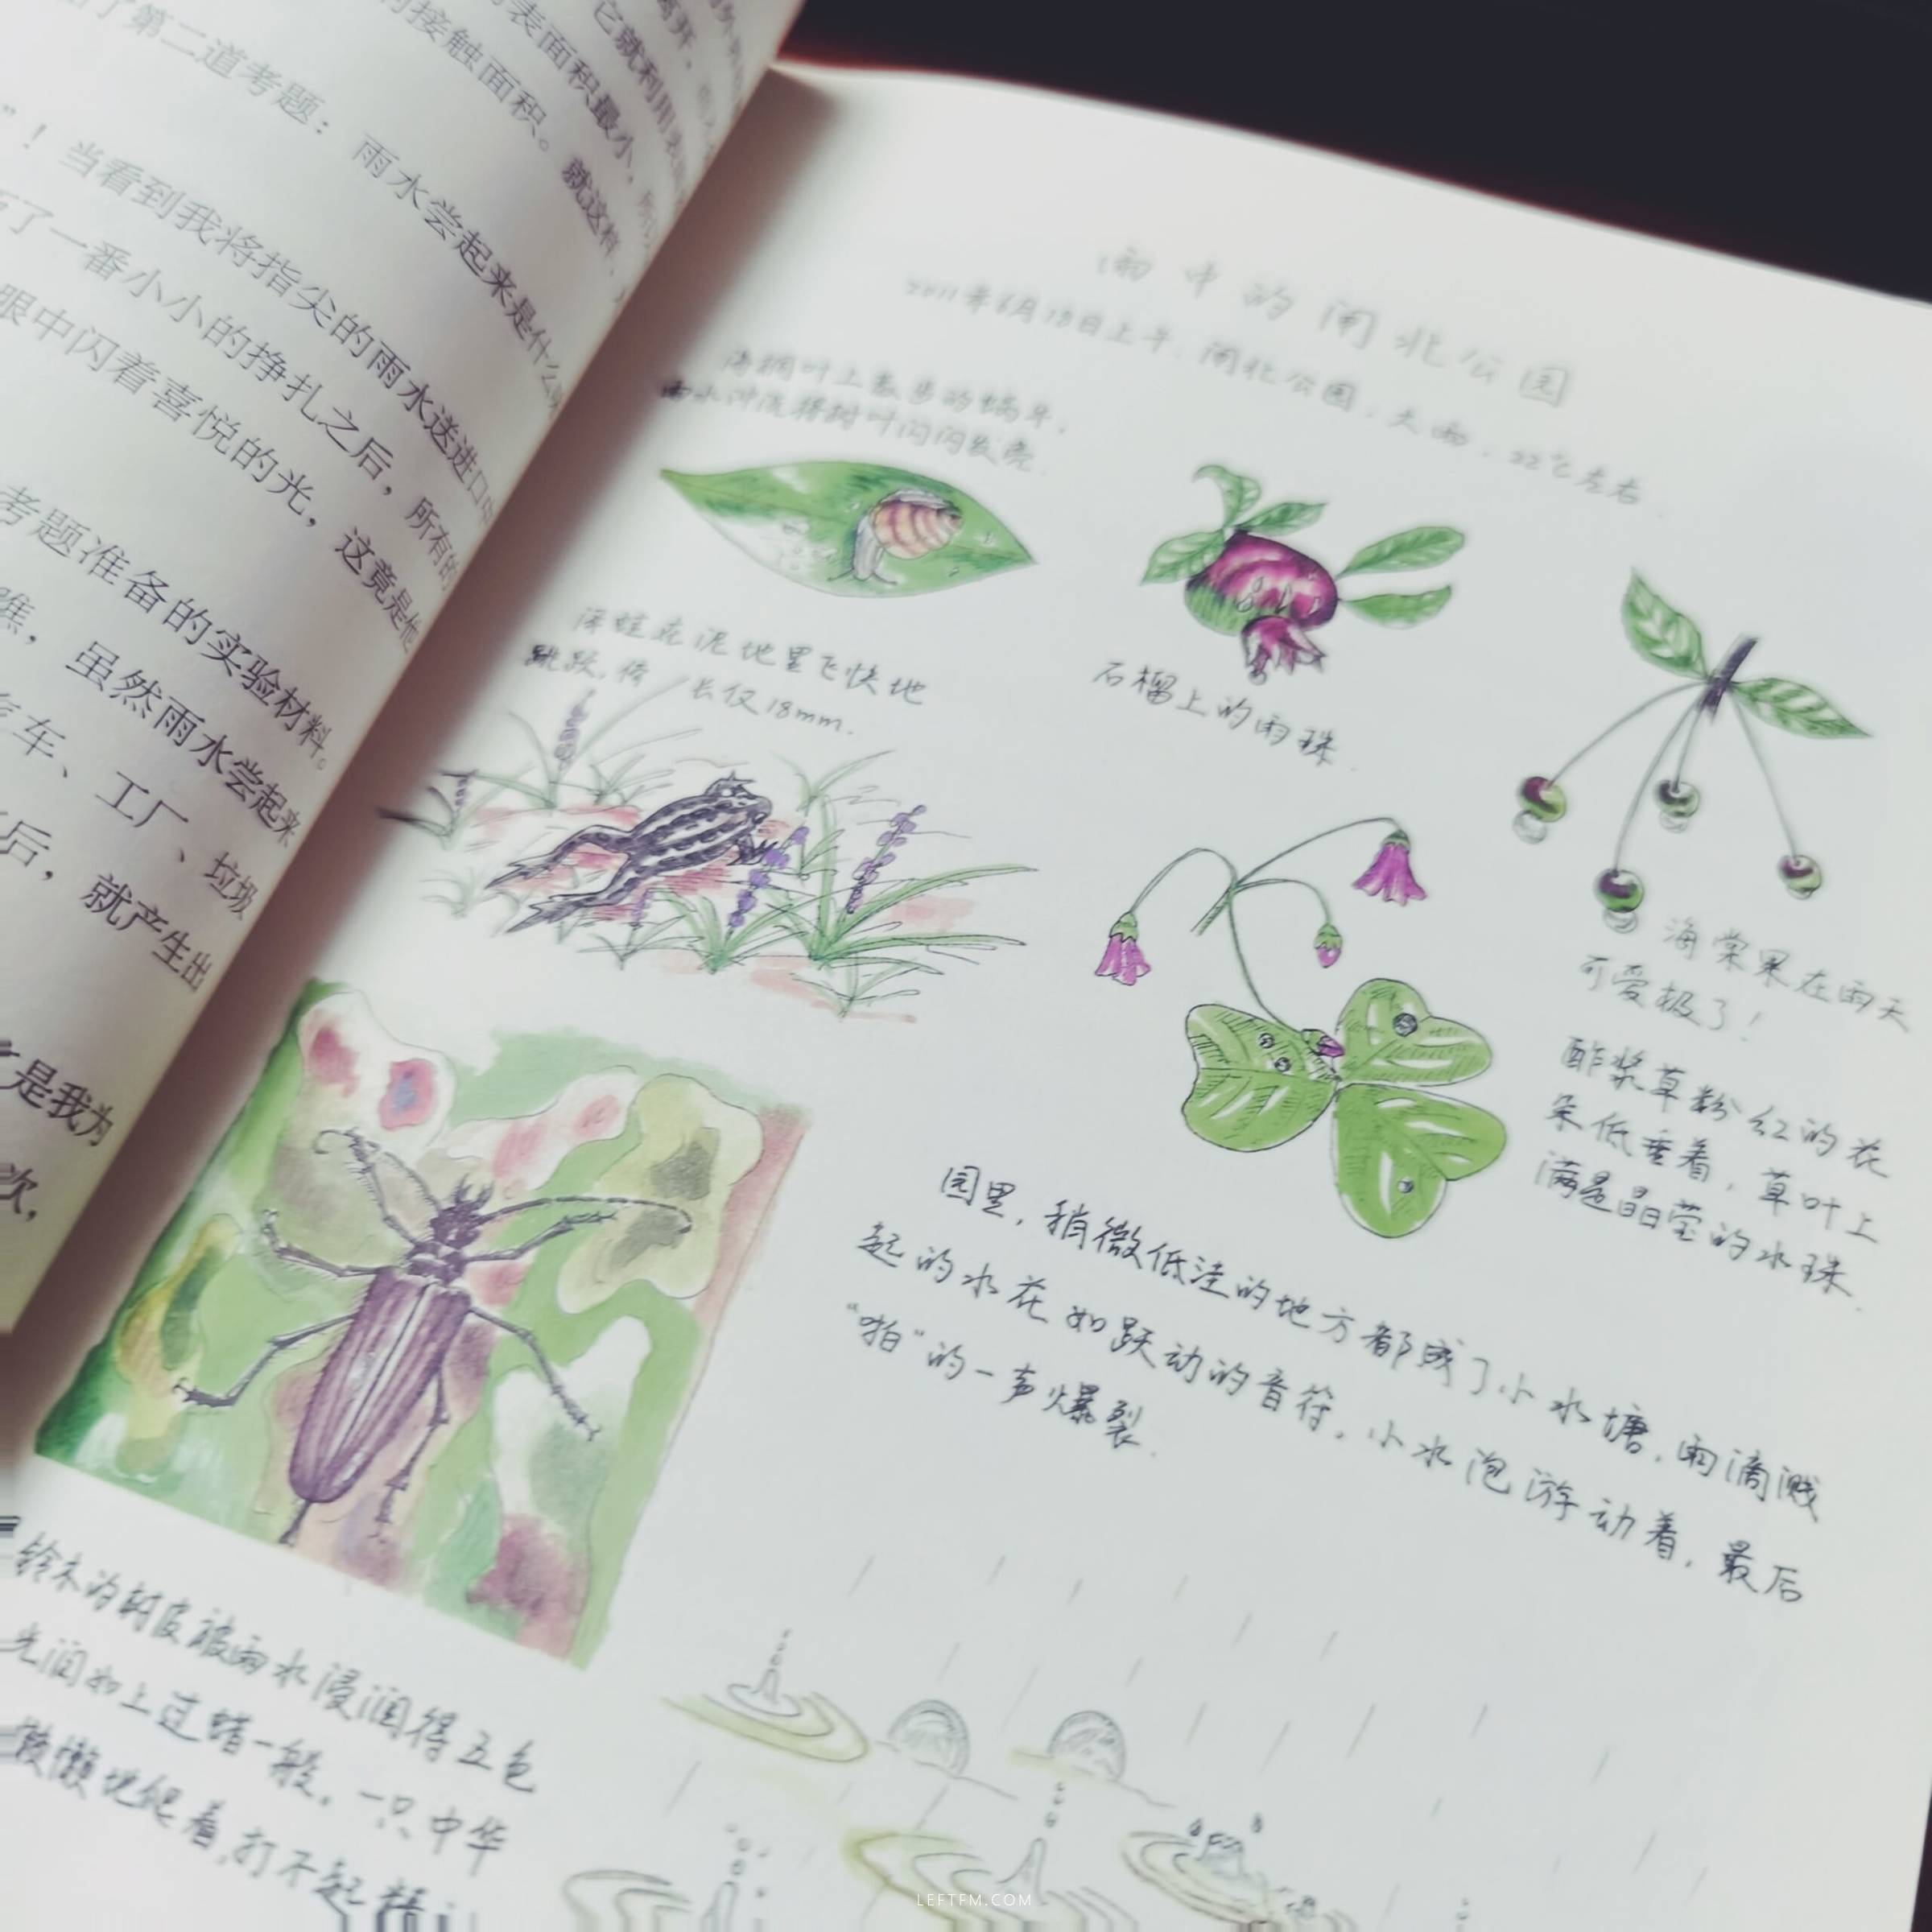 的表面积最小，所
的接触面积。就这样，
了第二道考题：雨水尝起来是什么
”！当看到我将指尖的雨水送进口中
了一番小小的挣扎之后，所有的
眼中闪着喜悦的光，这竟是他
考题准备的实验材料。
瞧，虽然雨水尝起来
汽车、工厂、垃圾
后，就产生出
是我为
次，
雨中的闸北公园
2011年6月18日上午，闸北公园，大雨，22℃左右．
海桐叶上散步的蜗牛，
雨水冲洗得树叶闪闪发亮．
泽蛙在泥地里飞快地
跳跃，体长仅18mm．
石榴上的雨珠．
海棠果在雨天
可爱极了！
酢浆草粉红的花
朵低垂着，草叶上
满是晶莹的水珠．
园里，稍微低洼的地方都成了小水塘，雨滴溅
起的水花如跃动的音符，小水泡游动着，最后
“啪”的一声爆裂．
木的树皮被雨水浸润得五色
光润如上过蜡一般，一只中华
懒懒地爬着，打不起精
LEFTFM.COM